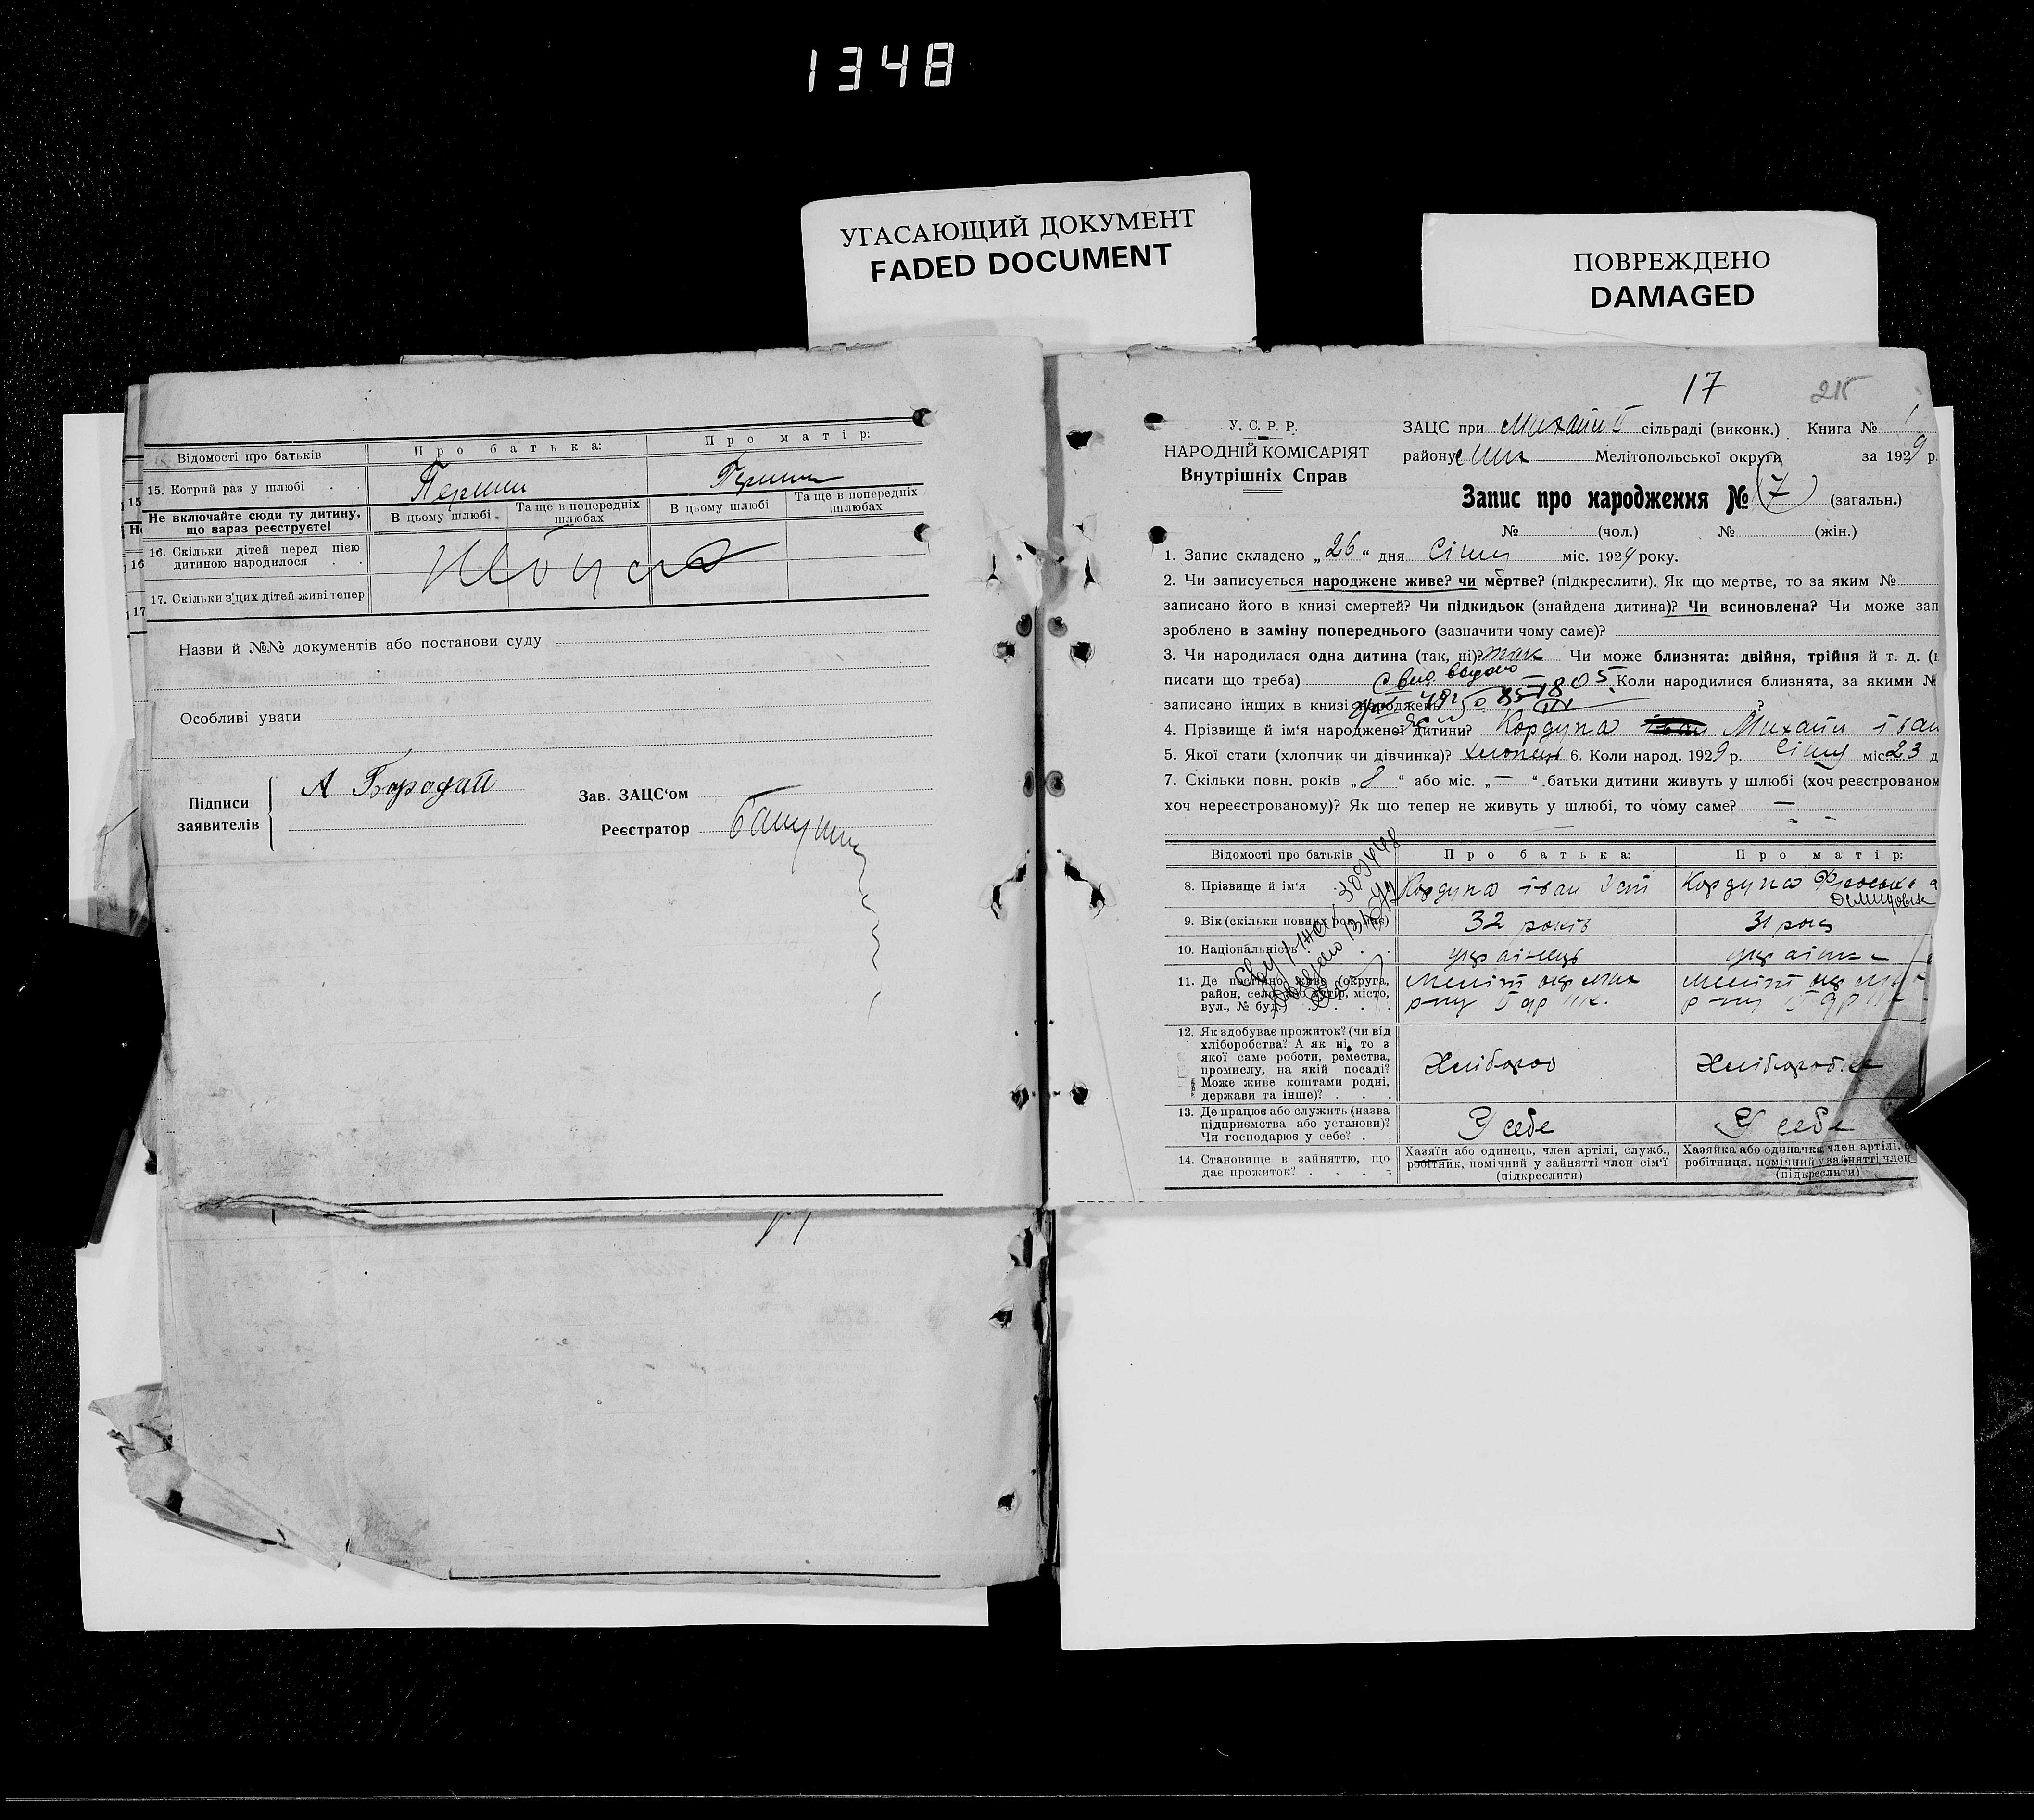 1348
УГАСАЮЩИЙ ДОКУМЕНТ
FADED DOCUMENT
ПОВРЕЖДЕНО
DAMAGED
Відомості про батьків
Про батька:
Про матір:
15. Котрий раз у шлюбі . .
Перший
Не включайте сюди ту дитину,
що вараз реєструєте!
В цьому шлюбі
Та ще в попередніх
шлюбах
В цьому шлюбі
Та ще в попередніх
шлюбах
16. Скільки дітей перед цією
дитиною народилося . .
17. Скільки з'цих дітей живі тепер
Назви й №№ документів або постанови суду
Особливі уваги
Підписи
заявителів
А Бородай
Зав. ЗАЦС'ом
Реєстратор
17
215
У. С. Р. Р.
НАРОДНІЙ КОМІСАРІЯТ
Внутрішніх Справ
ЗАЦС при сільраді (виконк.) Книга № 1
району Мелітопольської округи за 1929 р.
Запис про народження № (7) (загальн.)
№ (чол.) № (жін.)
1. Запис складено „26“ дня Січня міс. 1929 року.
2. Чи записується народжене живе? чи мертве? (підкреслити). Як що мертве, то за яким №
записано його в книзі смертей? Чи підкидьок (знайдена дитина)? Чи всиновлена? Чи може зап
зроблено в заміну попереднього (зазначити чому саме)?
3. Чи народилася одна дитина (так, ні)? так Чи може близнята: двійня, трійня й т. д. (н
писати що треба) Коли народилися близнята, за якими №
записано інших в книзі народжень
4. Прізвище й ім'я народженої дитини? Кордупа Михайл іван
5. Якої стати (хлопчик чи дівчинка)? хлопець 6. Коли народ. 1929 р. Січня міс. 23 д
7. Скільки повн. років „8“ або міс. „—“ батьки дитини живуть у шлюбі (хоч реєстрованом
хоч нереєстрованому)? Як що тепер не живуть у шлюбі, то чому саме? —
Відомості про батьків
Про батька:
Про матір:
8. Прізвище й ім'я
Кордупа іван
Кордупа
9. Вік (скільки повних років має)
32 років
31 років
10. Національність
українець
українка
11. Де постійно живе (округа,
район, село або хутір, місто,
вул., № буд.)
12. Як здобуває прожиток? (чи від
хліборобства? А як ні, то з
якої саме роботи, ремества,
промислу, на якій посаді?
Може живе коштами родні,
держави та інше)? . . .
Хлібороб
Хліборобка
13. Де працює або служить (назва
підприємства або установи)?
Чи господарює у себе? .
У себе
У себе
14. Становище в зайняттю, що
дає прожиток? . . . .
Хазяїн або одинець, член артілі, служб.,
робітник, помічний у зайнятті член сім'ї
(підкреслити)
Хазяйка або одиначка, член артілі,
робітниця, помічний у зайнятті член
(підкреслити)